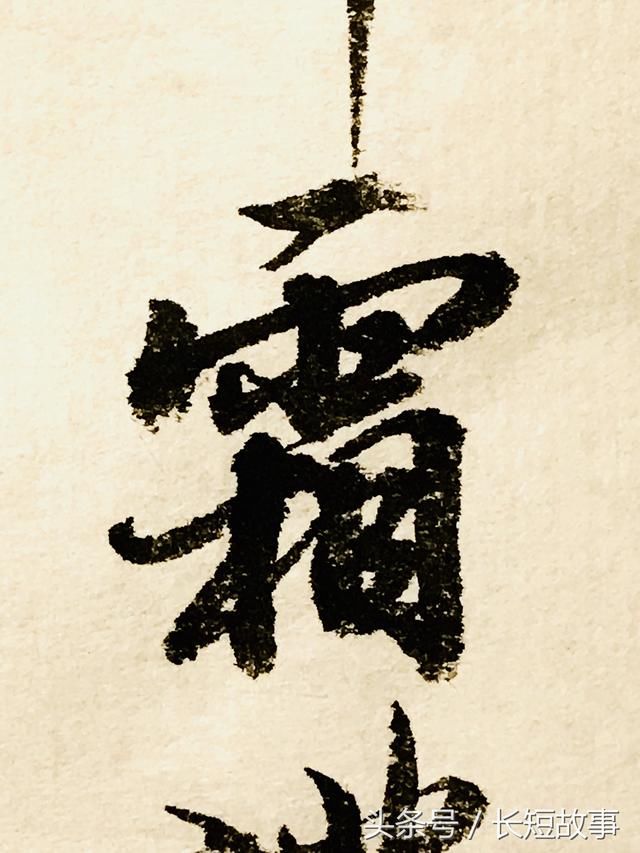 霜
头条号 / 长短故事